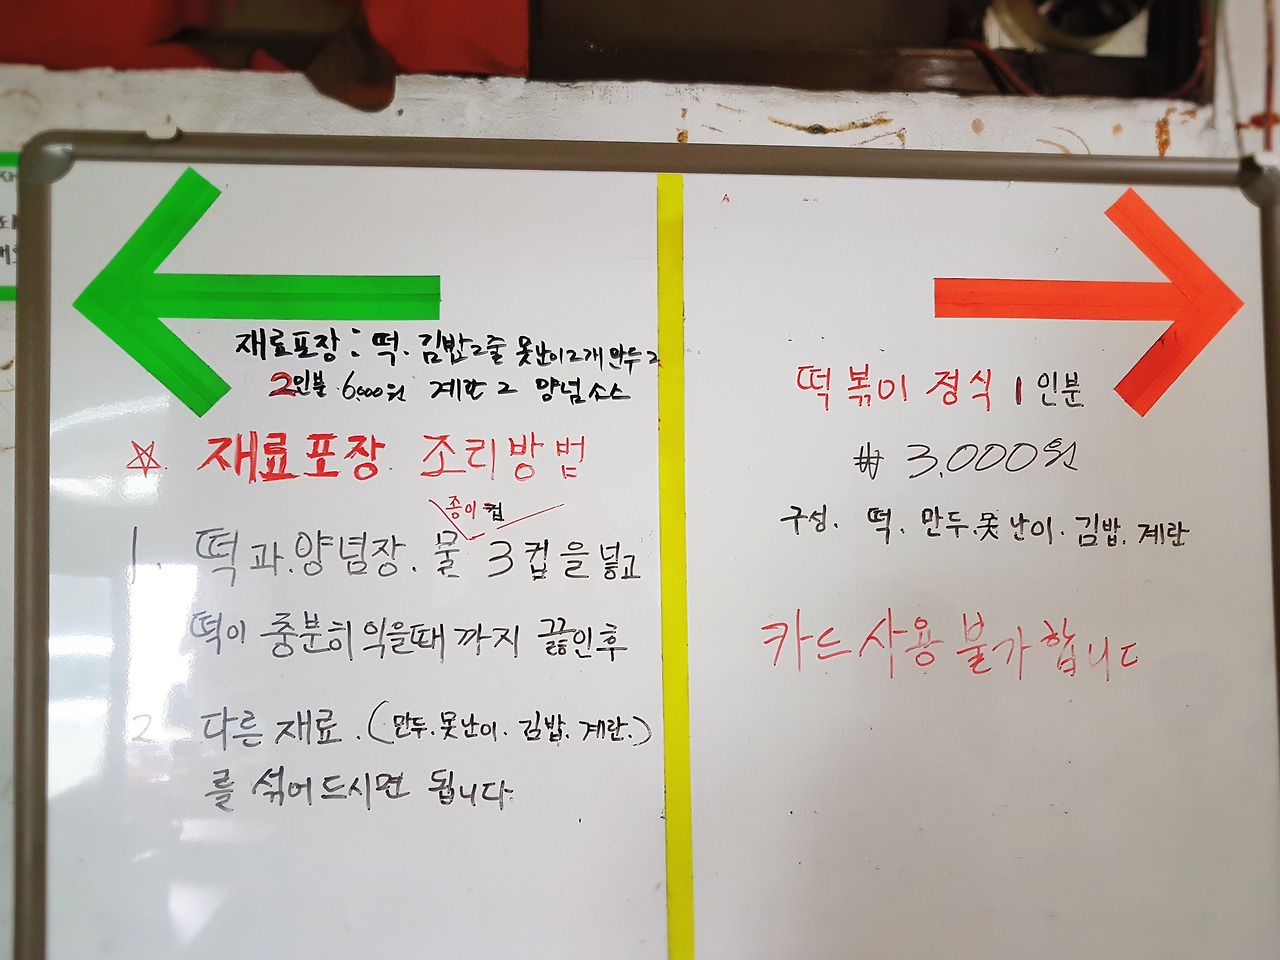 재료포장: 떡. 김밥2줄 못난이2개 만두2
2인분 6,000원 계란 2 양념소스
재료포장 조리방법
종이컵
1. 떡과.양념장. 물 3컵을 넣고
떡이 충분히 익을때 까지 끓인후
2 다른 재료. (만두.못난이. 김밥. 계란.)
를 섞어드시면 됩니다.
떡볶이 정식 1인분
₩ 3,000원
구성. 떡. 만두.못난이. 김밥. 계란
카드사용불가합니다